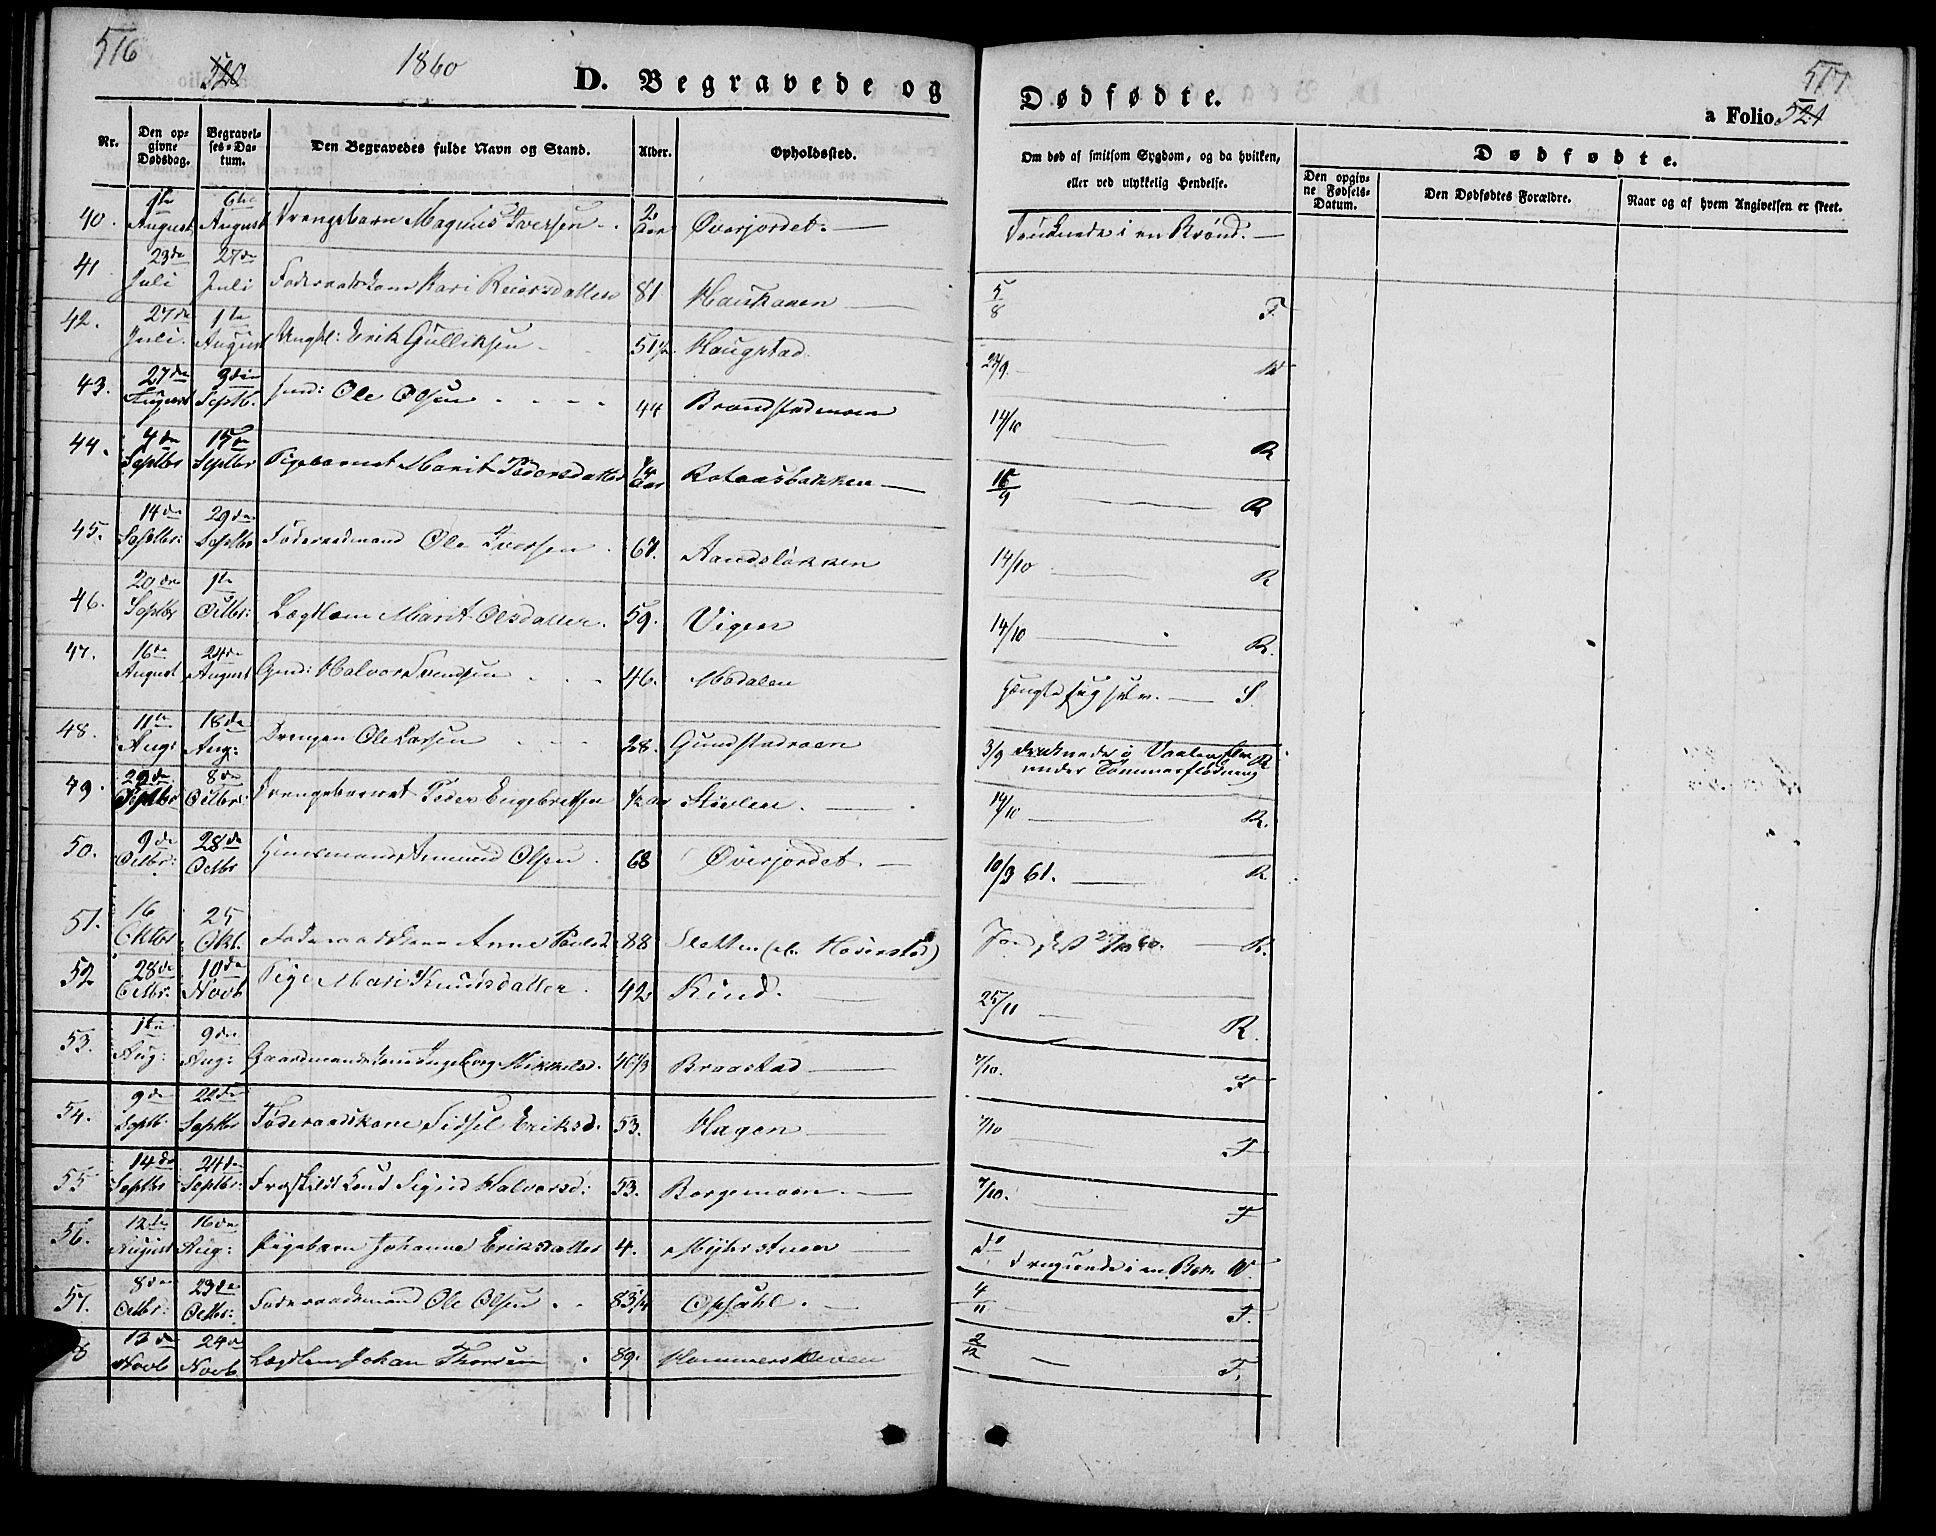 516
520
1860
D. Begravede og
Nr.
Den opgivne Dødsdag.
Begravelses-Datum.
Den Begravedes fulde Navn og Stand.
Alder.
Opholdssted.
40. 1te August 6te August Drengebarn Magnus Iversen 2 Aar Øverjordet.
41 23de Juli 27de Juli Føderaadskone Kari Reiersdatter 81 Haukaaen
42. 27de Juli. 1te August Ungkl: Erik Gulliksen 51 1/2 Haugstad.
43. 27de August 3die Septb. Ind: Ole Olsen 44 Brandstadmoen
44. 4de Septbr 15de Septbr Pigebarnet Marit Pedersdatter 1/4 Aar Rotaasbakken
45. 14de Septbr: 29de Septbr Føderaadmand Ole Iversen 67. Aandsløkken
46. 20de Septbr 1te Octbr: Lægdlem Marit Olsdatter. 59. Vigen
47. 16de August 24de August Gmd: Halvor Svendsen 46. Modalen
48. 11te Aug: 18de Aug: Drengen Ole Larsen 28. Gundstadroen
49. 29de Septbr 8de Octbr: Drengebarnet Peder Engebretsen 1/2 Aar Støvlen.
50. 9de Octbr: 28de Octbr Huusmand Amund Olsen 68 Øverjordet
51. 16 Oktbr 25 Okt. Føderaadskone Anne Paulsd. 88 Sletten
52. 28de Octbr: 10de Novb Pige Mari Knudsdatter. 42 Kind.
53. 1te Aug: 9de Aug: Gaardmandskone Ingeborg Mikkelsd. 46 1/3 Braastad
54. 9de Septb. 22de Septbr Føderaadskone Sidsel Eriksd. 53. Hagen
55 14de Septbr 24de Septbr: Fraskildt Kone Sigrid Halvorsd: 53. Borgemoen.
56. 12te August 16de Aug: Pigebarn Johanna Eriksdatter 4. Myherstuen
57. 8de Octbr: 23de Octbr: Føderaadsmand Ole Olsen 83 1/4 Opsahl.
8 13de Novb 24de Novb Lægdlem Johan Thorsen 89. Hammerskleven
Dødfødte.
517
a Folio 521
Om død af smitsom Sygdom, og da hvilken, eller ved ulykkelig Hendelse.
Dødfødte.
Den opgivne Fødsels-Datum.
Den Dødfødtes Forældre.
Naar og af hvem Angivelsen er skeet.
Druknede i en Brønd.
5/8 F.
23/9. W
14/10 R
16/9 R
14/10 R
14/10 R.
Hængte sig selv. S.
3/9 druknede i Vaalengelven R
under Tømmerflødning
14/10 R.
10/3 61. R
R.
25/11 R.
7/10. F
7/10 F
7/10. F
do druknede i en Bæk W.
4/11 F.
2/12 F.